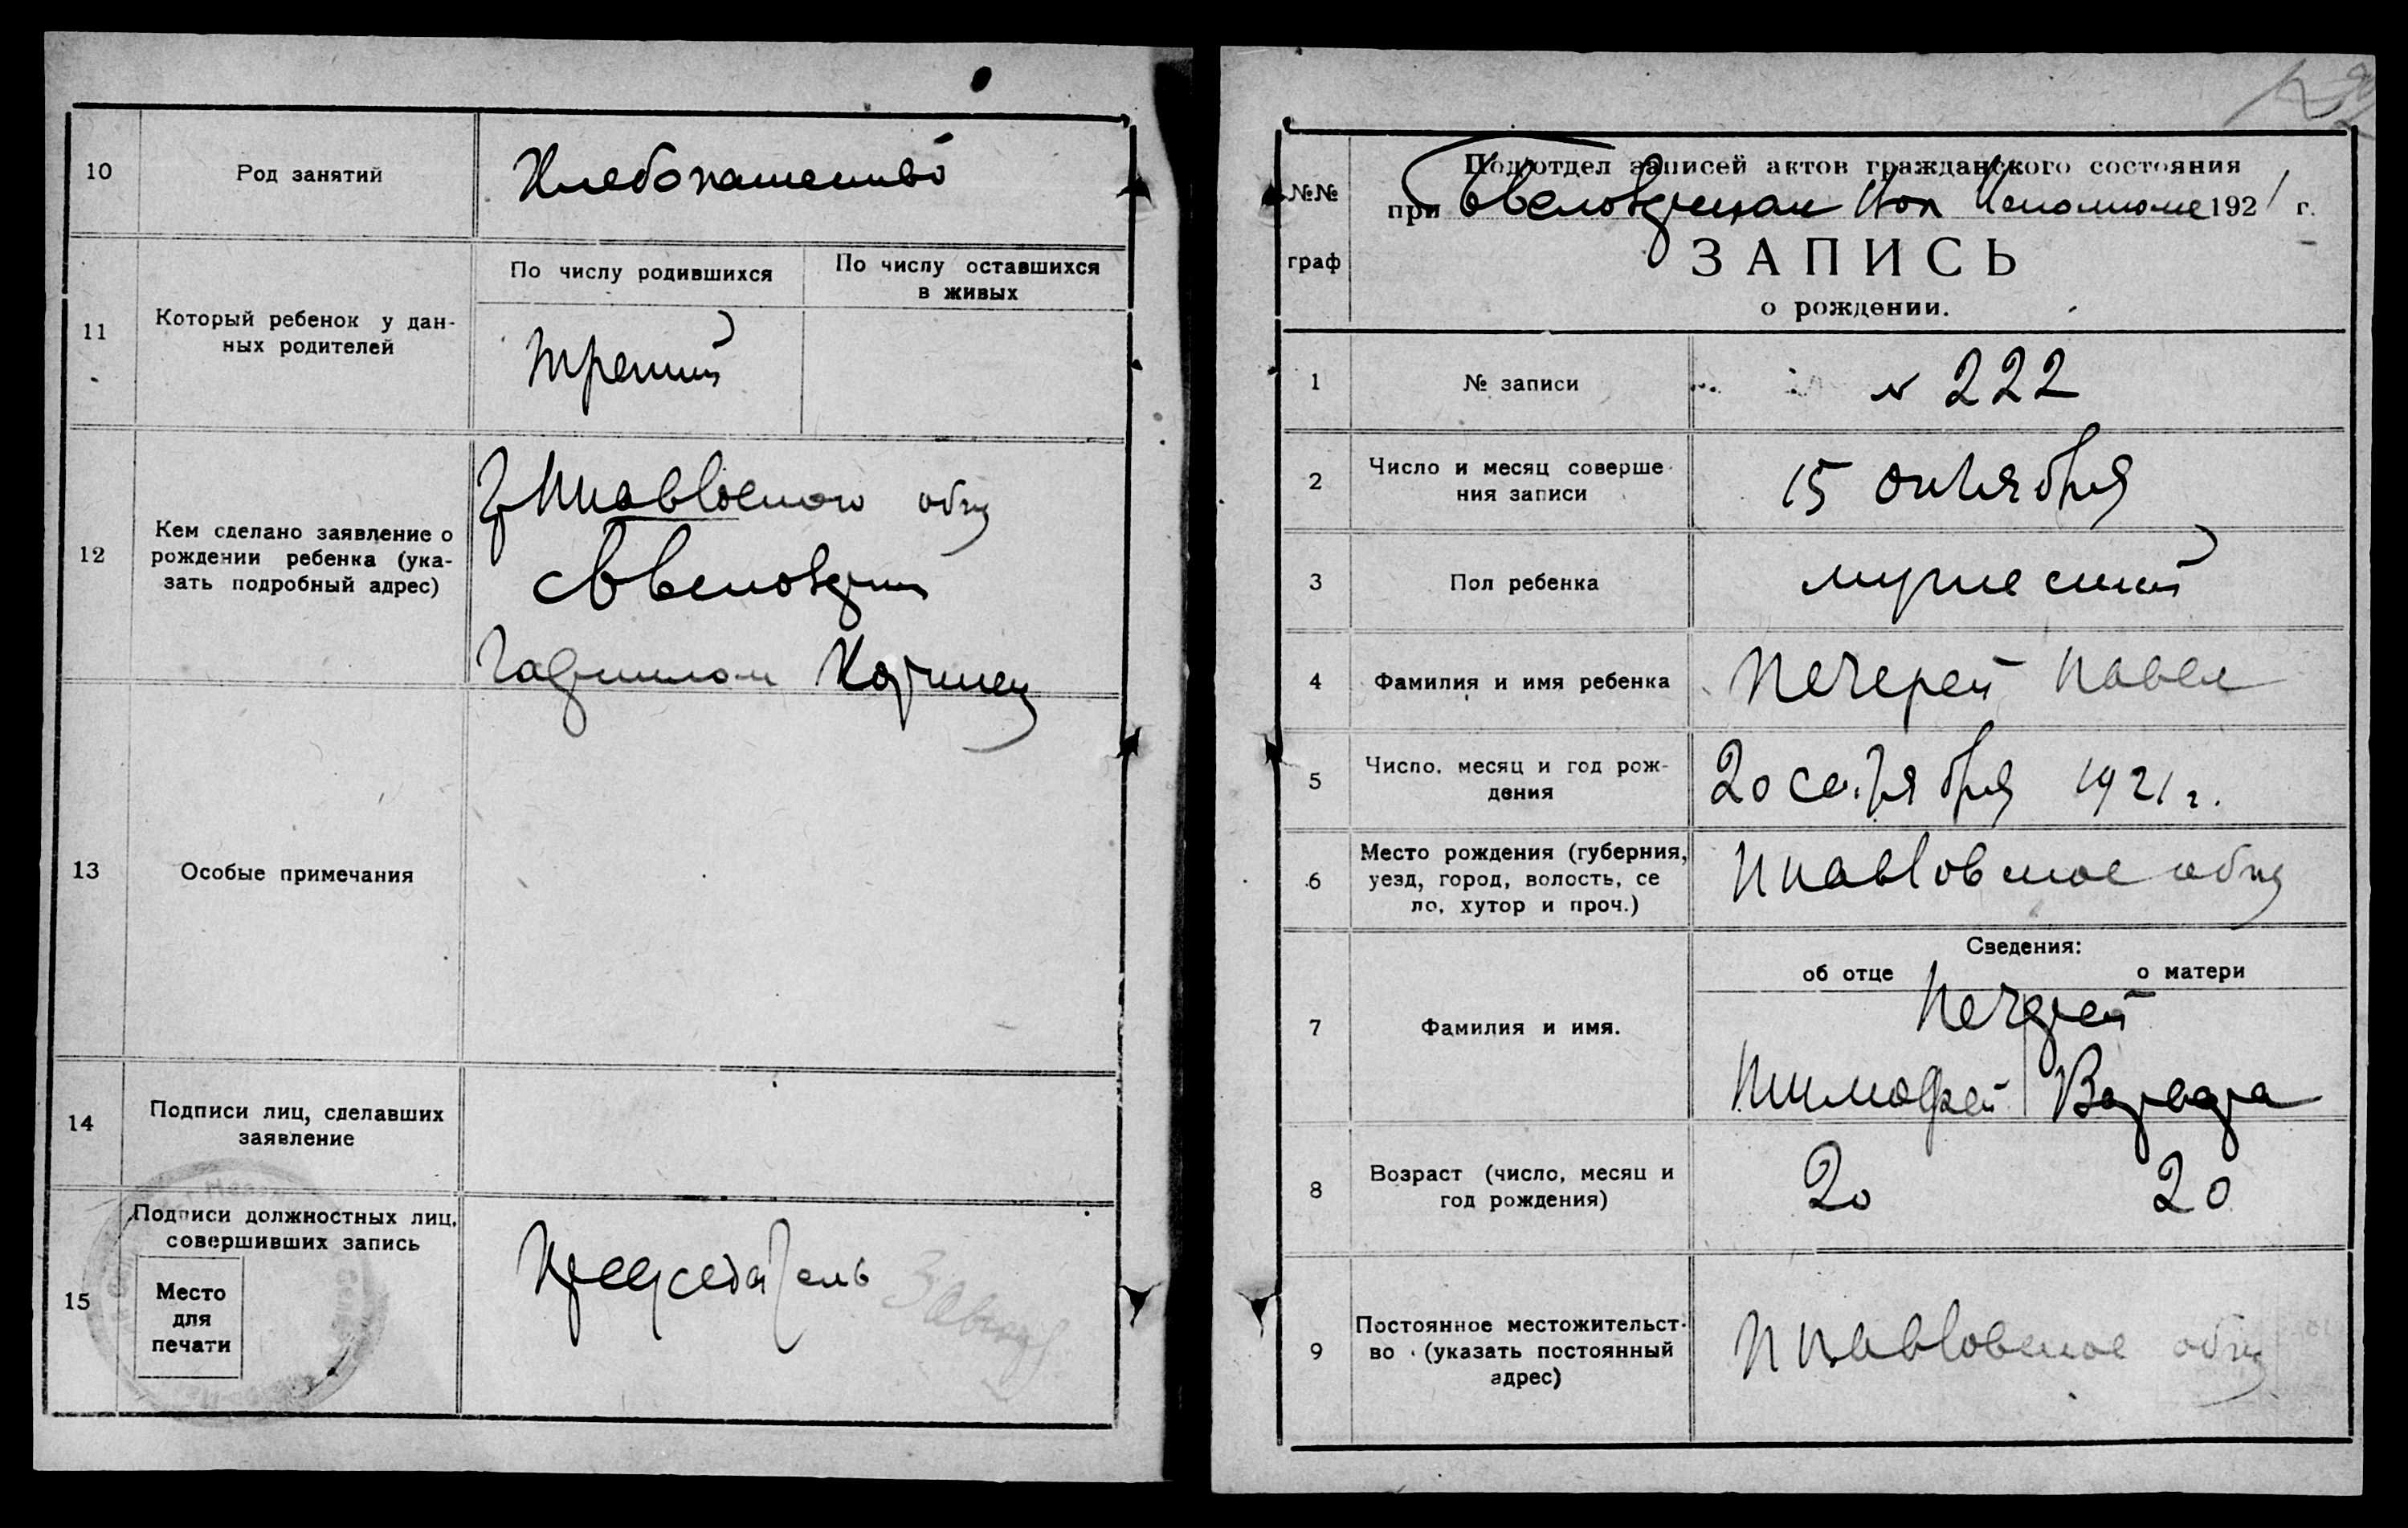 10
Род занятий
Хлебопашество
11
Который ребенок у дан-
ных родителей
По числу родившихся
По числу оставшихся
в живых
третий
12
Кем сделано заявление о
рождении ребенка (ука-
зать подробный адрес)
общ
Гавриилом
13
Особые примечания
14
Подписи лиц, сделавших
заявление
15
Подписи должностных лиц,
совершивших запись
Место
для
печати
Председатель
№№
граф
Подотдел записей актов гражданского состояния
при 1921 г.
ЗАПИСЬ
о рождении.
1
№ записи
№ 222
2
Число и месяц соверше-
ния записи
15 октября
3
Пол ребенка
мужеский
4
Фамилия и имя ребенка
Печерей Павел
5
Число, месяц и год рож-
дения
20 сентября 1921 г.
6
Место рождения (губерния,
уезд, город, волость, се
ло, хутор и проч.)
общ
7
Фамилия и имя.
Сведения:
об отце
о матери
Печерей
Тимофей
Варвара
8
Возраст (число, месяц и
год рождения)
20
20
9
Постоянное местожительст-
во (указать постоянный
адрес)
общ